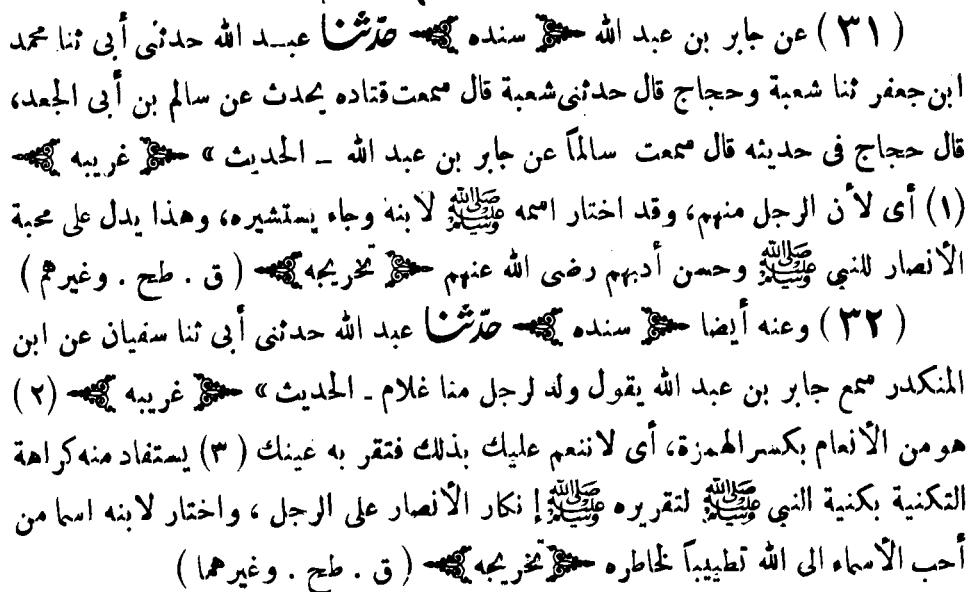 ( ٣١ ) عن جابر بن عبد الله ﴿ سنده ﴾ حدّثنا عبــد الله حدثنى أبى ثنا محمد
ابن جعفر ثنا شعبة وحجاج قال حدثنى شعبة قال سمعت قتاده يحدث عن سالم بن أبى الجعد،
قال حجاج فى حديثه قال سمعت سالماً عن جابر بن عبد الله ــ الحديث » ﴿ غريبه ﴾
(١) أى لأن الرجل منهم، وقد اختار اسمه ﷺ لابنه وجاء يستشيره، وهذا يدل على محبة
الأنصار للنبي ﷺ وحسن أدبهم رضى الله عنهم ﴿ تخريجه ﴾ ( ق . طح . وغيرهم )
( ٣٢ ) وعنه أيضا ﴿ سنده ﴾ حدّثنا عبد الله حدثنى أبى ثنا سفيان عن ابن
المنكدر سمع جابر بن عبد الله يقول ولد لرجل منا غلام ـ الحديث » ﴿ غريبه ﴾ (٢)
هو من الأنعام بكسر الهمزة، أى لاننعم عليك بذلك فتقر به عينك (٣) يستفاد منه كراهة
التكنية بكنية النبي ﷺ لتقريره ﷺ إنكار الأنصار على الرجل ، واختار لابنه اسما من
أحب الأسماء الى الله تطييباً لخاطره ﴿ تخريجه ﴾ ( ق . طح . وغيرهما )